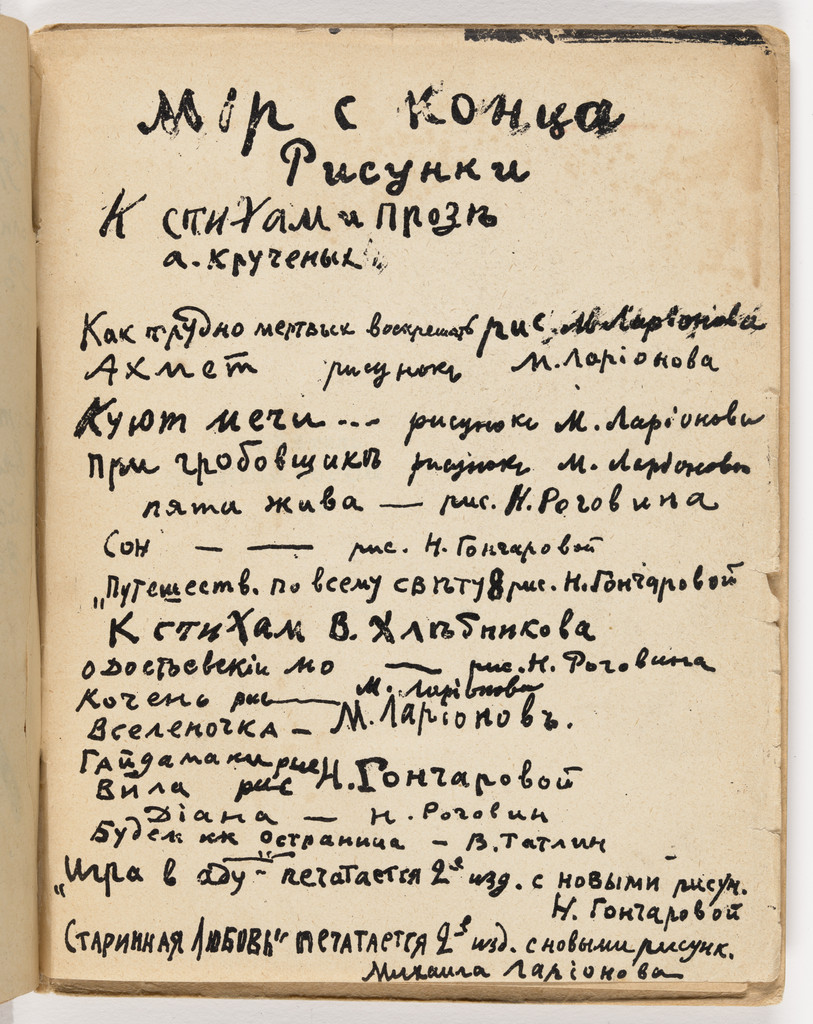 Мір с конца
Рисунки
К стихам и прозѣ
а. Крученых
Как трудно мертвых воскрешать рис. М. Ларіонова
Ахмет рисунокъ М. Ларіонова
Куют мечи --- рисунок М. Ларіонова
При гробовщикѣ рисунок М. Ларіонова
пята жива — рис. Н. Роговина
Сон — — рис. Н. Гончаровой
„Путешеств. по всему свѣту 8 рис. Н. Гончаровой
К стихам В. Хлѣбникова
О Достоевскій мо — рис. Н. Роговина
Кочень рис — М. Ларіонова
Вселеночка — М. Ларіоновъ.
Гайдамаки рис
Вила рис Н. Гончаровой
Діана — Н. Роговин
Будех кк остраница — В. Татлин
„Игра в аду" — печатается 2е изд. с новыми рисун.
Н. Гончаровой
Старинная Любовь" печатается 2е изд. с новыми рисунк.
Михаила Ларіонова